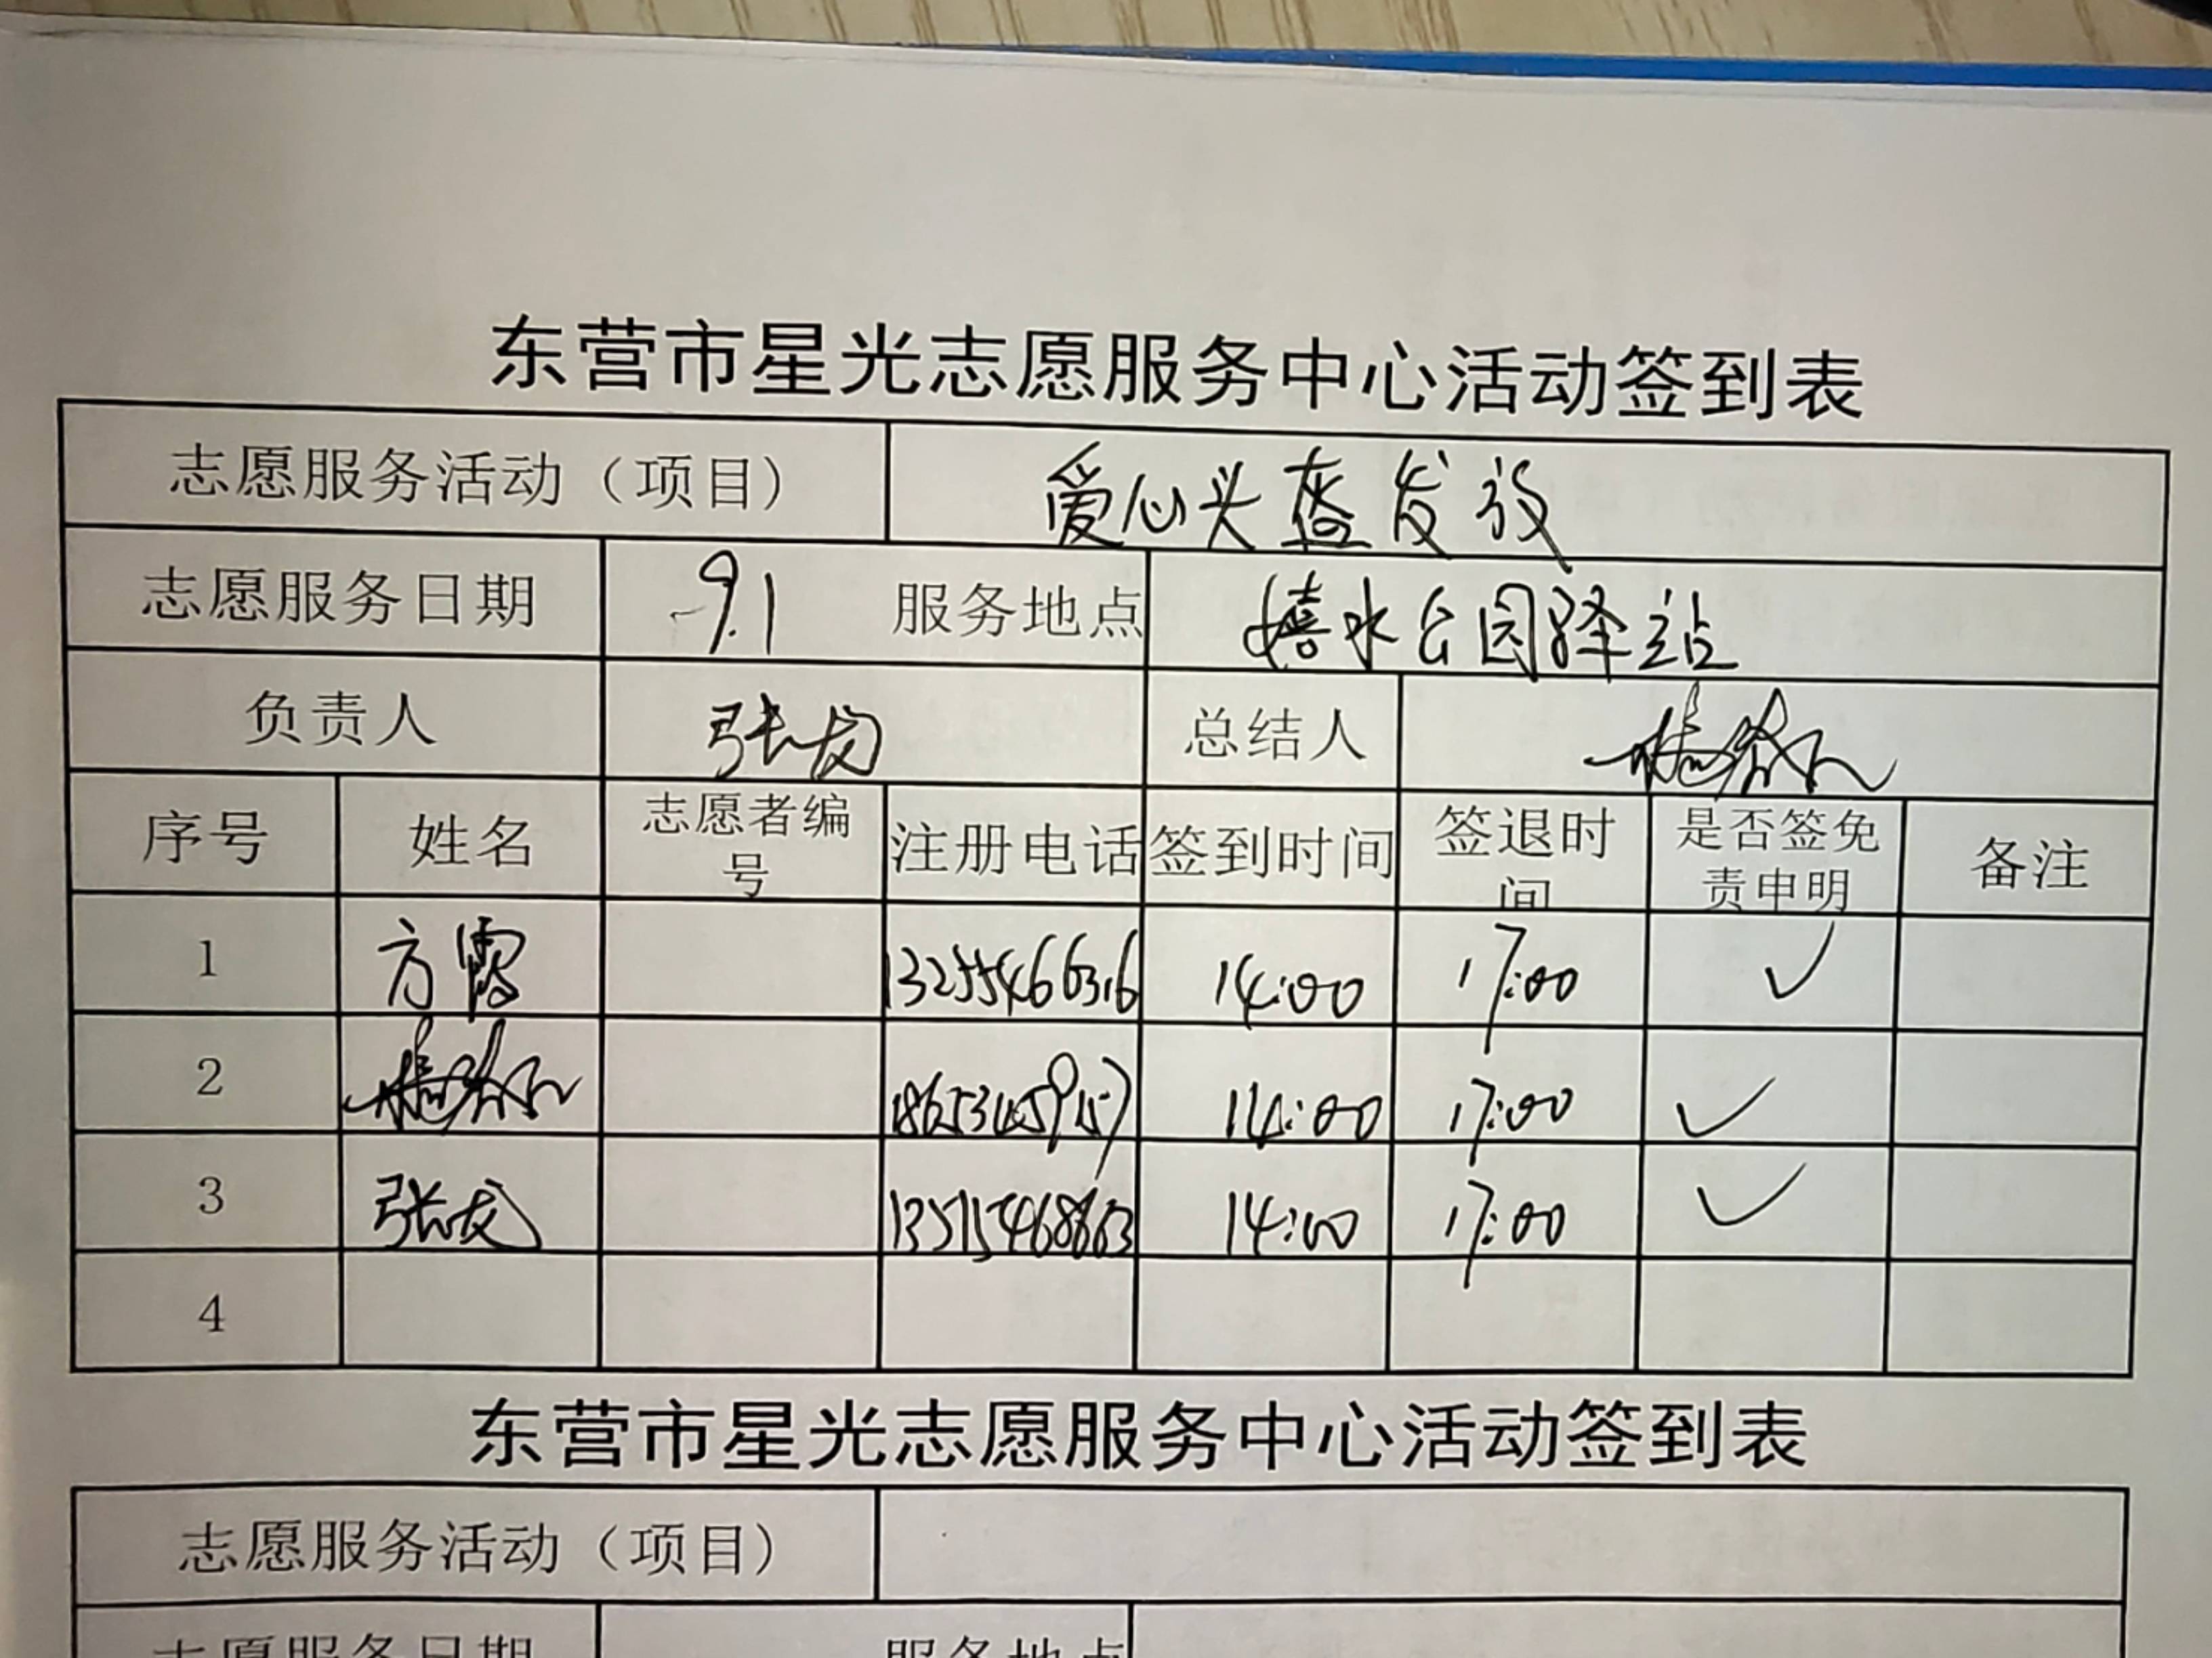 东营市星光志愿服务中心活动签到表
志愿服务活动（项目） 爱心头盔发放
志愿服务日期 9.1 服务地点 嬉水公园驿站
负责人 张龙 总结人
序号 姓名 志愿者编号 注册电话 签到时间 签退时间 是否签免责申明 备注
1 方霞 13255466316 14:00 17:00 ✓
2 14:00 17:00 ✓
3 张龙 13515468663 14:00 17:00 ✓
4
东营市星光志愿服务中心活动签到表
志愿服务活动（项目）
志愿服务日期 服务地点